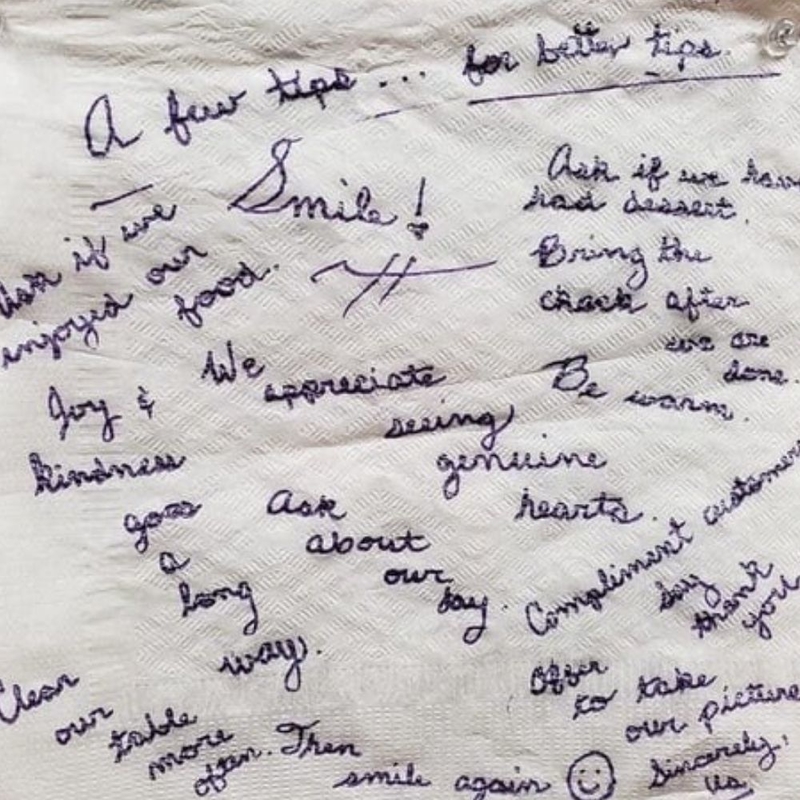 A few tips... for better tips.
Smile!
Ask if we
enjoyed our
food.
Ask if we have
had dessert.
Bring the
check after
we are
done.
We
appreciate
seeing
genuine
hearts.
Be warm.
Joy &
kindness
goes
a
long
way.
Ask
about
our
day.
Compliment customers
Say
thank
you
Clear
our
table
more
often. Then
smile again
Offer
to take
our picture
Sincerely,
Us